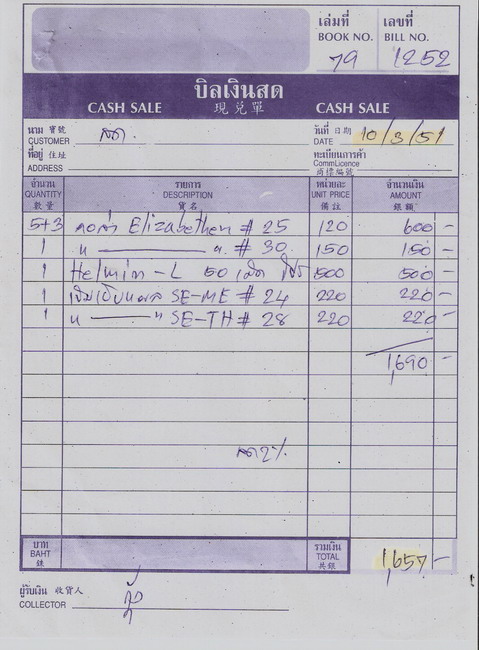 เล่มที่ เลขที่
BOOK NO. BILL NO.
79 1252
บิลเงินสด
CASH SALE 現兌單 CASH SALE
นาม 寶號
CUSTOMER สด.
วันที่ 日期
DATE 10/3/51
ที่อยู่ 住址
ADDRESS
ทะเบียนการค้า
CommLicence
商標編號
จำนวน รายการ หน่วยละ จำนวนเงิน
QUANTITY DESCRIPTION UNIT PRICE AMOUNT
數量 貨名 備註 銀額
5+3 Elizabethen # 25 120 600 –
1 " ——— # 30. 150 150 –
1 Helmin – L 50 เม็ด 500 500 –
1 เข็มเย็บแผล SE-ME # 24 220 220 –
1 " ——— " SE-TH # 28 220 220 –
1,690 –
ลด 2%
บาท รวมเงิน
BAHT TOTAL 1,657 –
銖 共銀
ผู้รับเงิน 收貨人
COLLECTOR